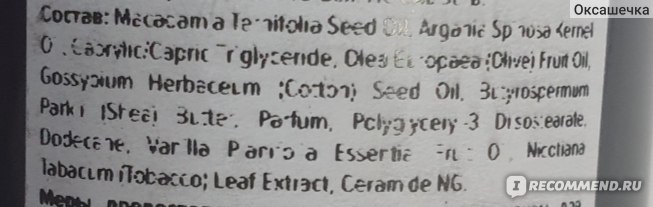 Оксашечка
Состав: Macadamia Ternifolia Seed Oil, Argania Spinosa Kernel
Oil, Caprylic/Capric Triglyceride, Olea Europaea (Olive) Fruit Oil,
Gossypium Herbaceum (Cotton) Seed Oil, Butyrospermum
Parkii (Shea) Butter, Parfum, Polyglyceryl-3 Diisostearate,
Dodecane, Vanilla Fruit Oil, Nicotiana
Tabacum (Tobacco) Leaf Extract, Ceramide NG.
Меры
IRECOMMEND.RU